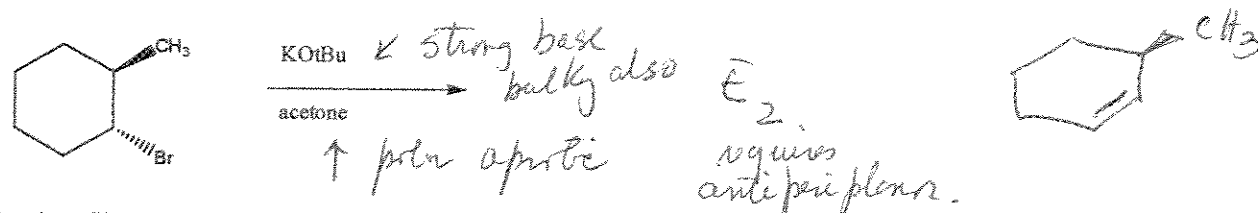 CH3
KOtBu ↙ strong base
bulky also
acetone
E2
CH3
↑ polar aprotic
requires
antiperiplanar.
Br